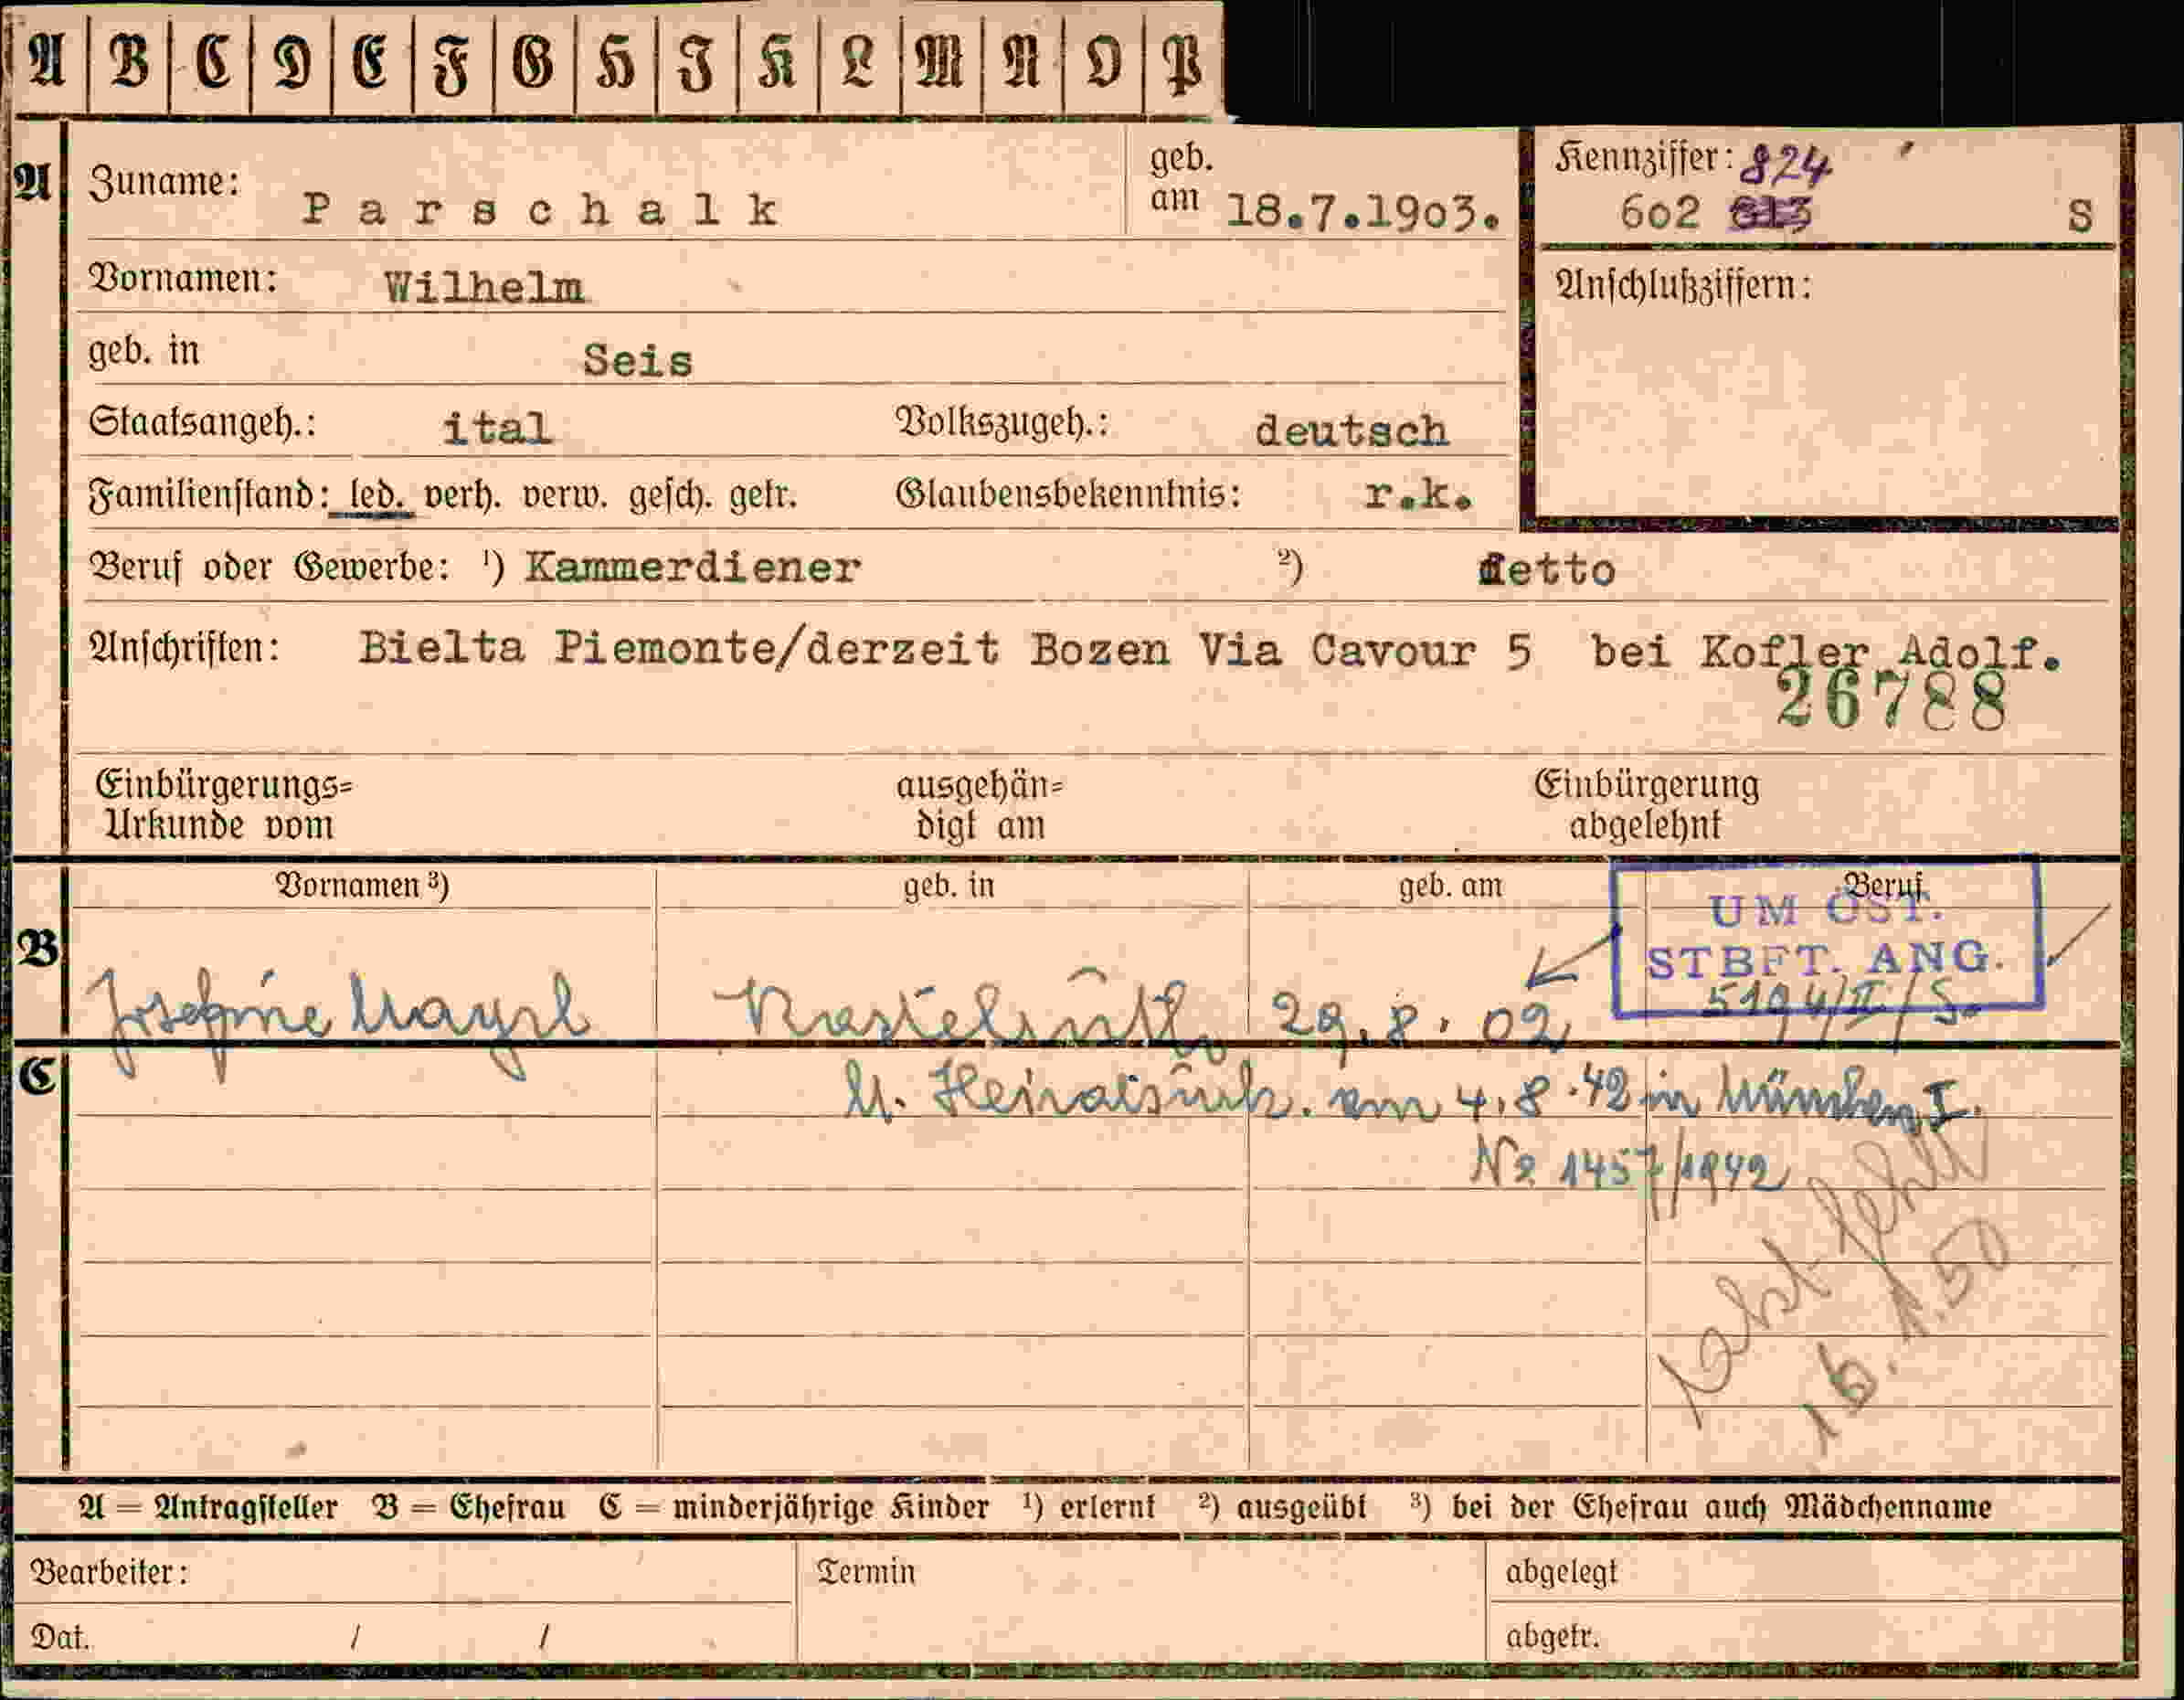 A B C D E F G H I K L M N O P
A Zuname: Parschalk geb. am 18.7.1903. Kennziffer: 824
602 613 S
Vornamen: Wilhelm Anschlußziffern:
geb. in Seis
Staatsangeh.: ital Volkszugeh.: deutsch
Familienstand: led. verh. verw. gesch. getr. Glaubensbekenntnis: r.k.
Beruf oder Gewerbe: ¹) Kammerdiener ²) detto
Anschriften: Bielta Piemonte/derzeit Bozen Via Cavour 5 bei Kofler Adolf.
26788
Einbürgerungs= ausgehän= Einbürgerung
Urkunde vom digt am abgelehnt
Vornamen ³) geb. in geb. am Beruf
UM ÖST.
STBFT. ANG.
5194/II/S.
B Josefine Mayrl Kastelruth 29.8.02
C lt. Heiratsurk. am 4.8.42 in München I.
No 1457/1942
Akt fehlt
16.1.50
A = Antragsteller B = Ehefrau C = minderjährige Kinder ¹) erlernt ²) ausgeübt ³) bei der Ehefrau auch Mädchenname
Bearbeiter: Termin abgelegt
Dat. / / abgetr.